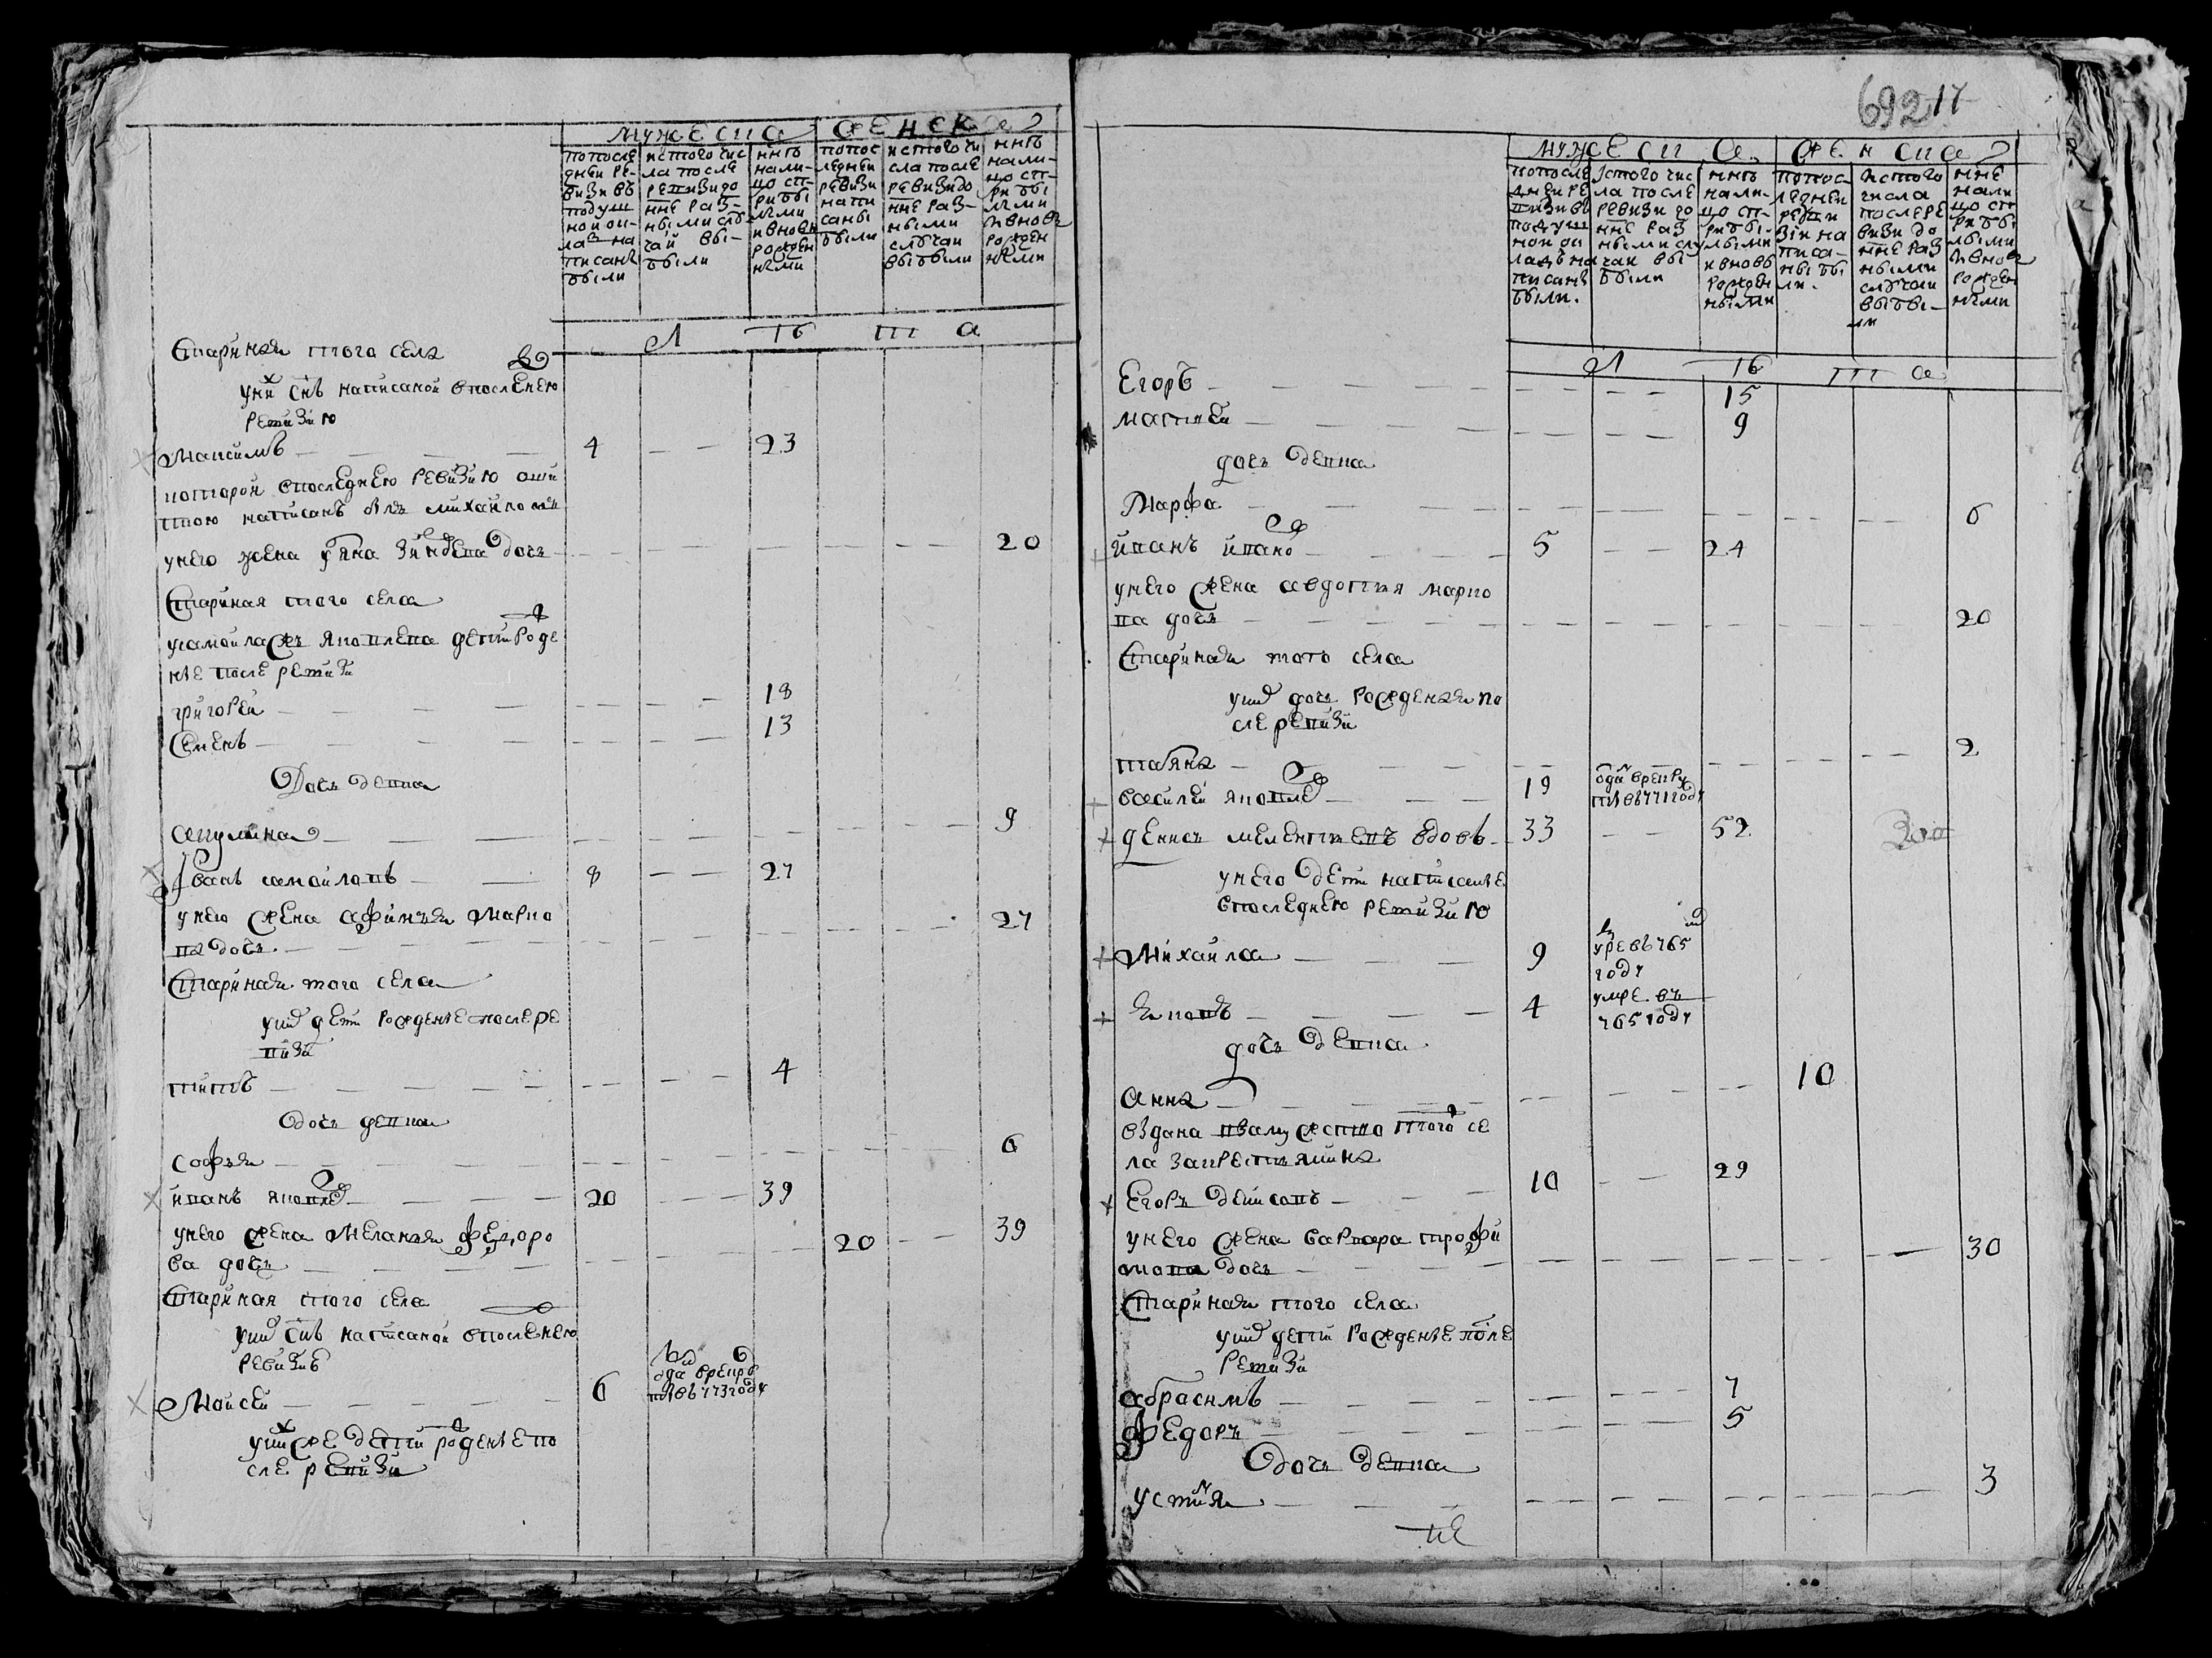 мужеска
женска
по после
дней ре-
визи въ
подуш
ной ок-
лад на
писанѣ
были
ис того чис
ла после
ревизи до
ныне раз-
ными слу
чаи вы-
были
ныне
нали-
цо с п-
рибы
лыми
и вновь
рожден
ными
по пос
ледней
ревизи
напи
саны
были
ис того чи
сла после
ревизи до
ныне раз-
ными
случаи
выбыли
ныне
нали-
цо с п-
рибы
лыми
и вновь
рожден
ными
л ѣ т а
Старинная того села
у них снъ написаной в последнею
ревизию
Максимъ 4 23
которой в последнею ревизию оши
пкою написанъ былъ
у него жена дочь 20
Старинная того села
у самойла ж яковлева дети рожде
ные после ревизи
григорей 18
Семенъ 13
Дочь девка
акулина 9
Івань самойловъ 8 27
у него жена афимья марко
ва дочь 27
Старинная того села
у них дети рожденые после ре
визи
титъ 4
дочь девка
софья 6
иванъ яковлев 20 39
у него жена меланья федоро
ва дочь 20 39
Старинная того села
у них снъ написаной в последнею
ревизию
Моисей 6 отдан в рекру
ты въ 773 году
у них же дети рожденые по
сле ревизи
692 17
мужеска
женска
по после
дней ре
визи въ
подуш
ной ок
ладъ на
писанѣ
были.
ис того чис
ла после
ревизи до
ныне раз
ными слу
чаи вы
были
ныне
нали-
цо с п-
рибы-
лыми
и вновь
рожден
ными
по пос-
ледней
реви
зіи на
писа-
ны бы
ли.
ис того
числа
после ре
визи до
ныне раз
ными
случаи
выбы-
ли
ныне
нали
цо с п
рибы
лыми
и вновь
рожден
ными
л ѣ т а
Егоръ 15
матвей 9
дочь девка
Марфа 6
иванъ иванов 5 24
у него жена авдотья марко
ва дочь 20
Старинная тогo села
у них дочь рожденая по
сле ревизи
татьяна 2
василей яковлев 19 отдан в рекру
ты въ 771 году
денисъ мелентьевъ вдовъ 33 52
у него дети написаные
в последнею ревизию
Михайла 9 умре въ 765
году
Яковъ 4 умре въ
765 году
дочь девка
Анна 10
выдана в замужство того се
ла за крестьянина
Егоръ денисовъ 10 29
у него жена варвара трофи
мова дочь 30
Старинная того села
у них дети рожденые после
ревизи
абрасимъ 7
Федоръ 5
дочь девка
устинья 3